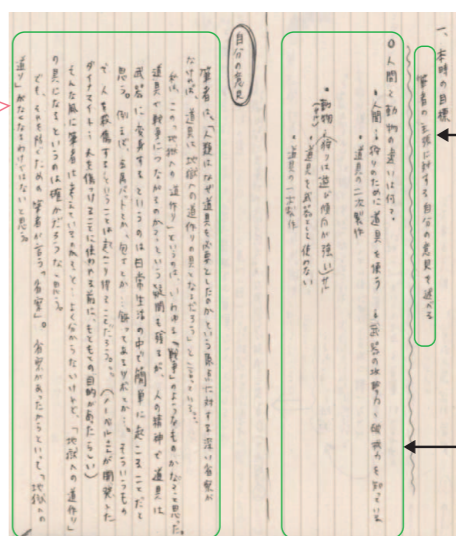 一、本時の目標
筆者の主張に対する自分の意見を述べる
○人間と動物の違いは何？
・人間は狩りのために道具を使う→武器の攻撃力・破壊力を知っている
・道具の二次製作
・動物の狩りは遊び傾向が強い
・道具を武器として使わない
・道具の一次製作
自分の意見
筆者は、「人類はなぜ道具を必要としたのかという原点に対する深い省察が
なければ、道具は地獄への道作りの具となるだろう」と言っていた。
私は、この「地獄への道作り」というのは、いわゆる「戦争」のようなものかなって思った。
道具が戦争につながるのか？っていう疑問を残るが、人の精神で道具は
武器に変身するというのは日常生活の中で簡単に起こることだと
思う。例えば、金属バットとか、包丁とか…。飾ってあるツボとか…。そういうもの
で人を殺傷するということは起こり得ることだろう。(ノーベルさんが開発した
ダイナマイトも人を傷つけることに使われる前に、もともとの目的があったらしい)
そんな風に筆者は考えていたのかな、と、よく分からないけれど、「地獄への道作り」
の具になるというのは確かだろうなと思う。
でも、それを防ぐための筆者が言う「省察」。省察があったからといって「地獄への
道作り」がなくなるわけではないと思う。